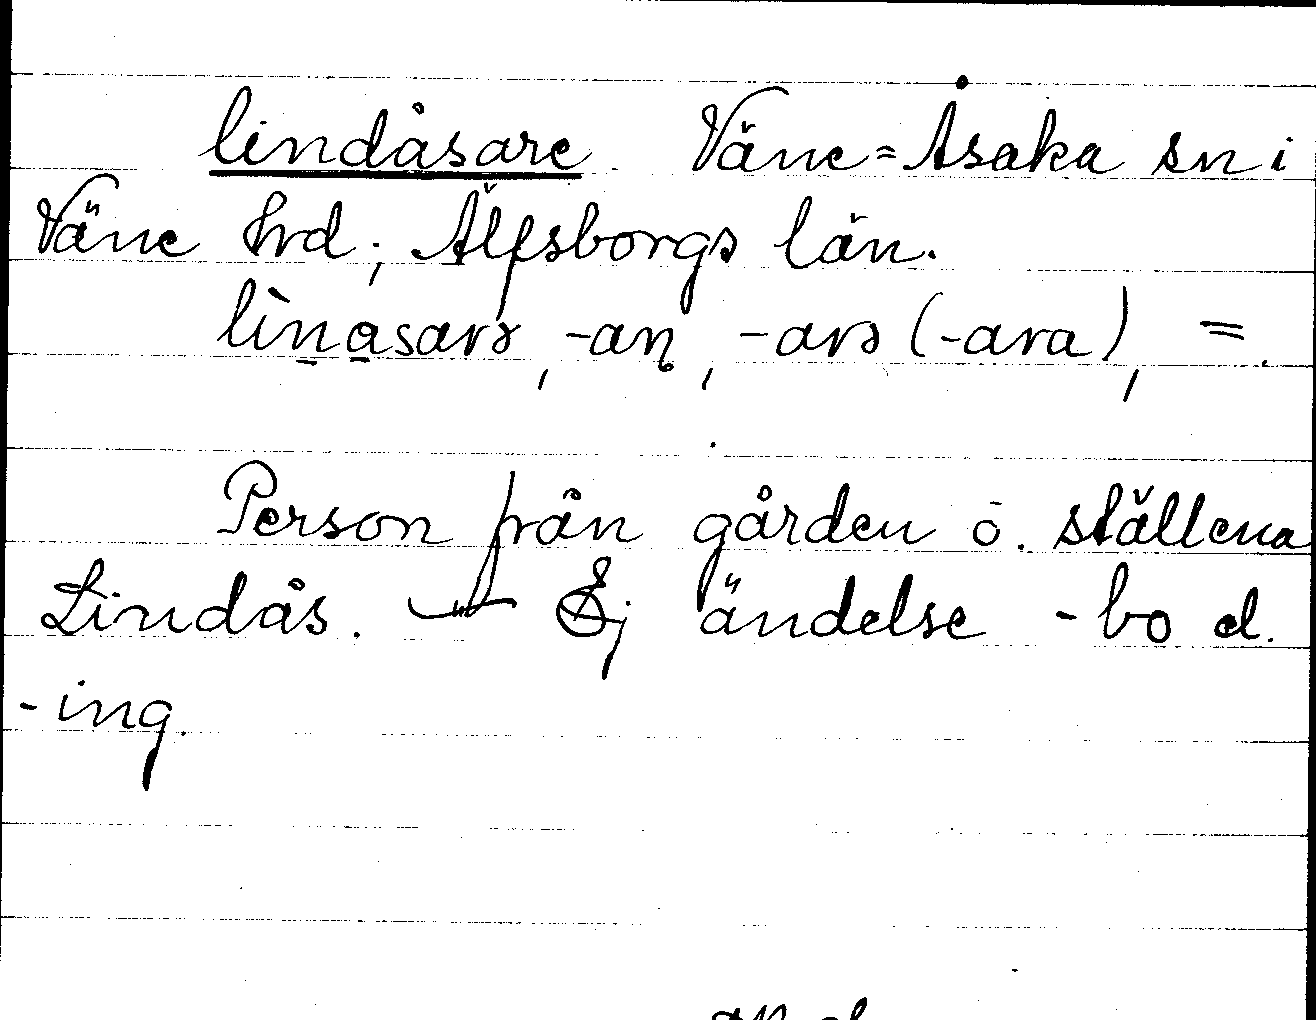 lindåsare Väne=Åsaka sn i
Väne hrd; Älfsborgs län.
lìn̲a̲sarə, -an̥, -arə (-ara), =.
Person från gården o. ställena
Lindås. — Ej ändelse -bo el.
-ing.